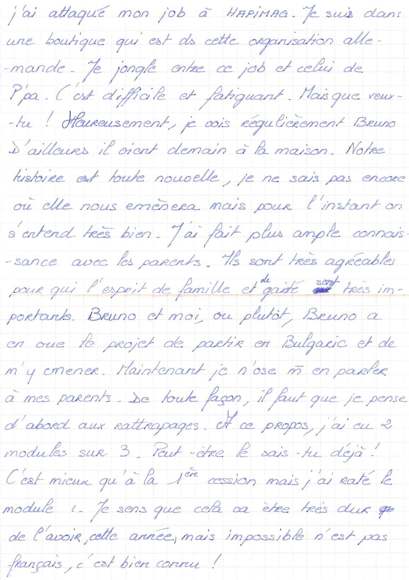 j'ai attaqué mon job à HAPIMAG. Je suis dans
une boutique qui est ds cette organisation alle-
mande. Je jongle entre ce job et celui de
P'pa. C'est difficile et fatiguant. Mais que veux-
-tu ! Heureusement, je vois régulièrement Bruno
D'ailleurs il vient demain à la maison. Notre
histoire est toute nouvelle, je ne sais pas encore
où elle nous emènera mais pour l'instant on
s'entend très bien. J'ai fait plus ample connais-
-sance avec les parents. Ils sont très agréables
pour qui l'esprit de famille et de gaité sont très im-
portants. Bruno et moi, ou plutôt, Bruno a
en vue le projet de partir en Bulgarie et de
m'y emener. Maintenant je n'ose m̄ en parler
à mes parents. De toute façon, il faut que je pense
d'abord aux rattrapages. A ce propos, j'ai eu 2
modules sur 3. Peut-être le sais-tu déjà !
C'est mieux qu'à la 1ère cession mais j'ai raté le
module 1. Je sens que cela va être très dur
de l'avoir, cette année, mais impossible n'est pas
français, c'est bien connu !